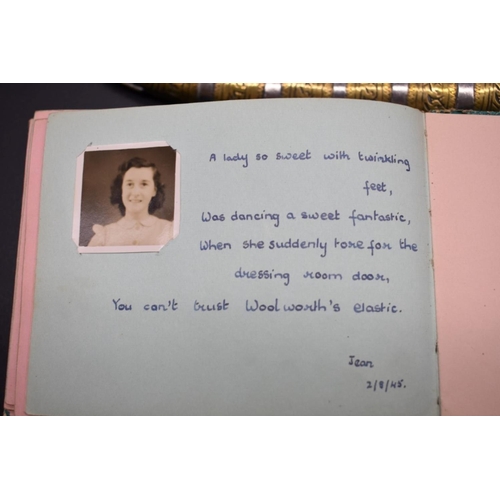 A lady so sweet with twinkling
feet,
Was dancing a sweet fantastic,
When she suddenly tore for the
dressing room door,
You can't trust Woolworth's elastic.
Jean
2/8/45.